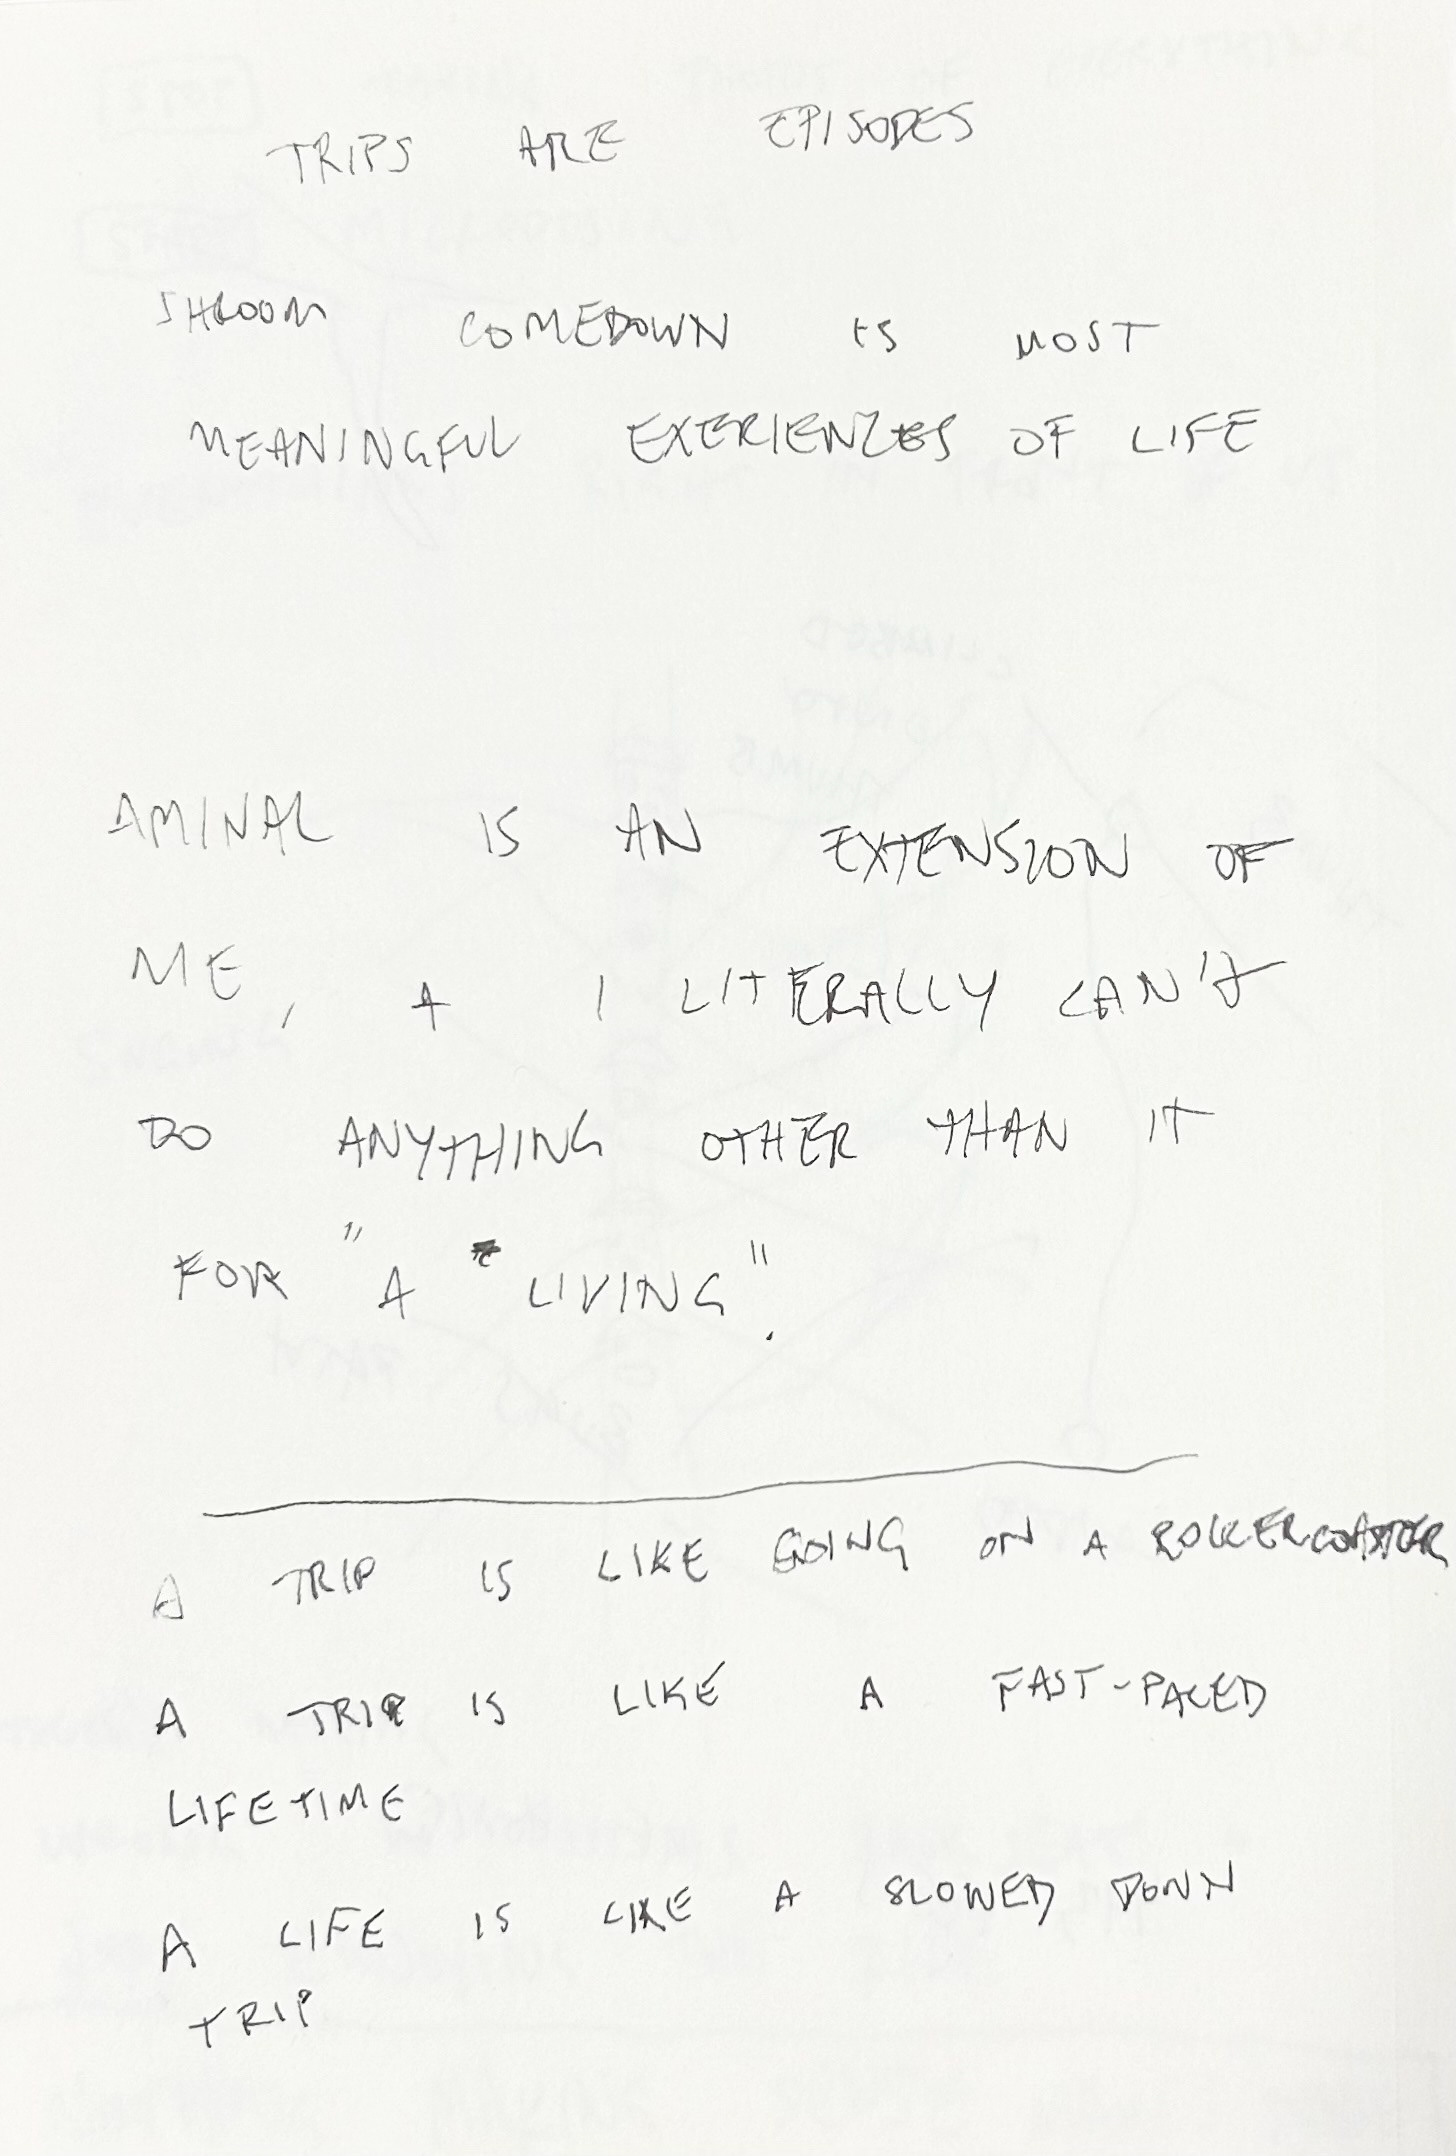 TRIPS ARE EPISODES
SHROOM COMEDOWN IS MOST
MEANINGFUL EXERIENCES OF LIFE
AMINAL IS AN EXTENSION OF
ME, + I LITERALLY CAN'T
DO ANYTHING OTHER THAN IT
FOR "A LIVING".
A TRIP IS LIKE GOING ON A ROLLERCOASTER
A TRIP IS LIKE A FAST-PACED
LIFETIME
A LIFE IS LIKE A SLOWED DOWN
TRIP